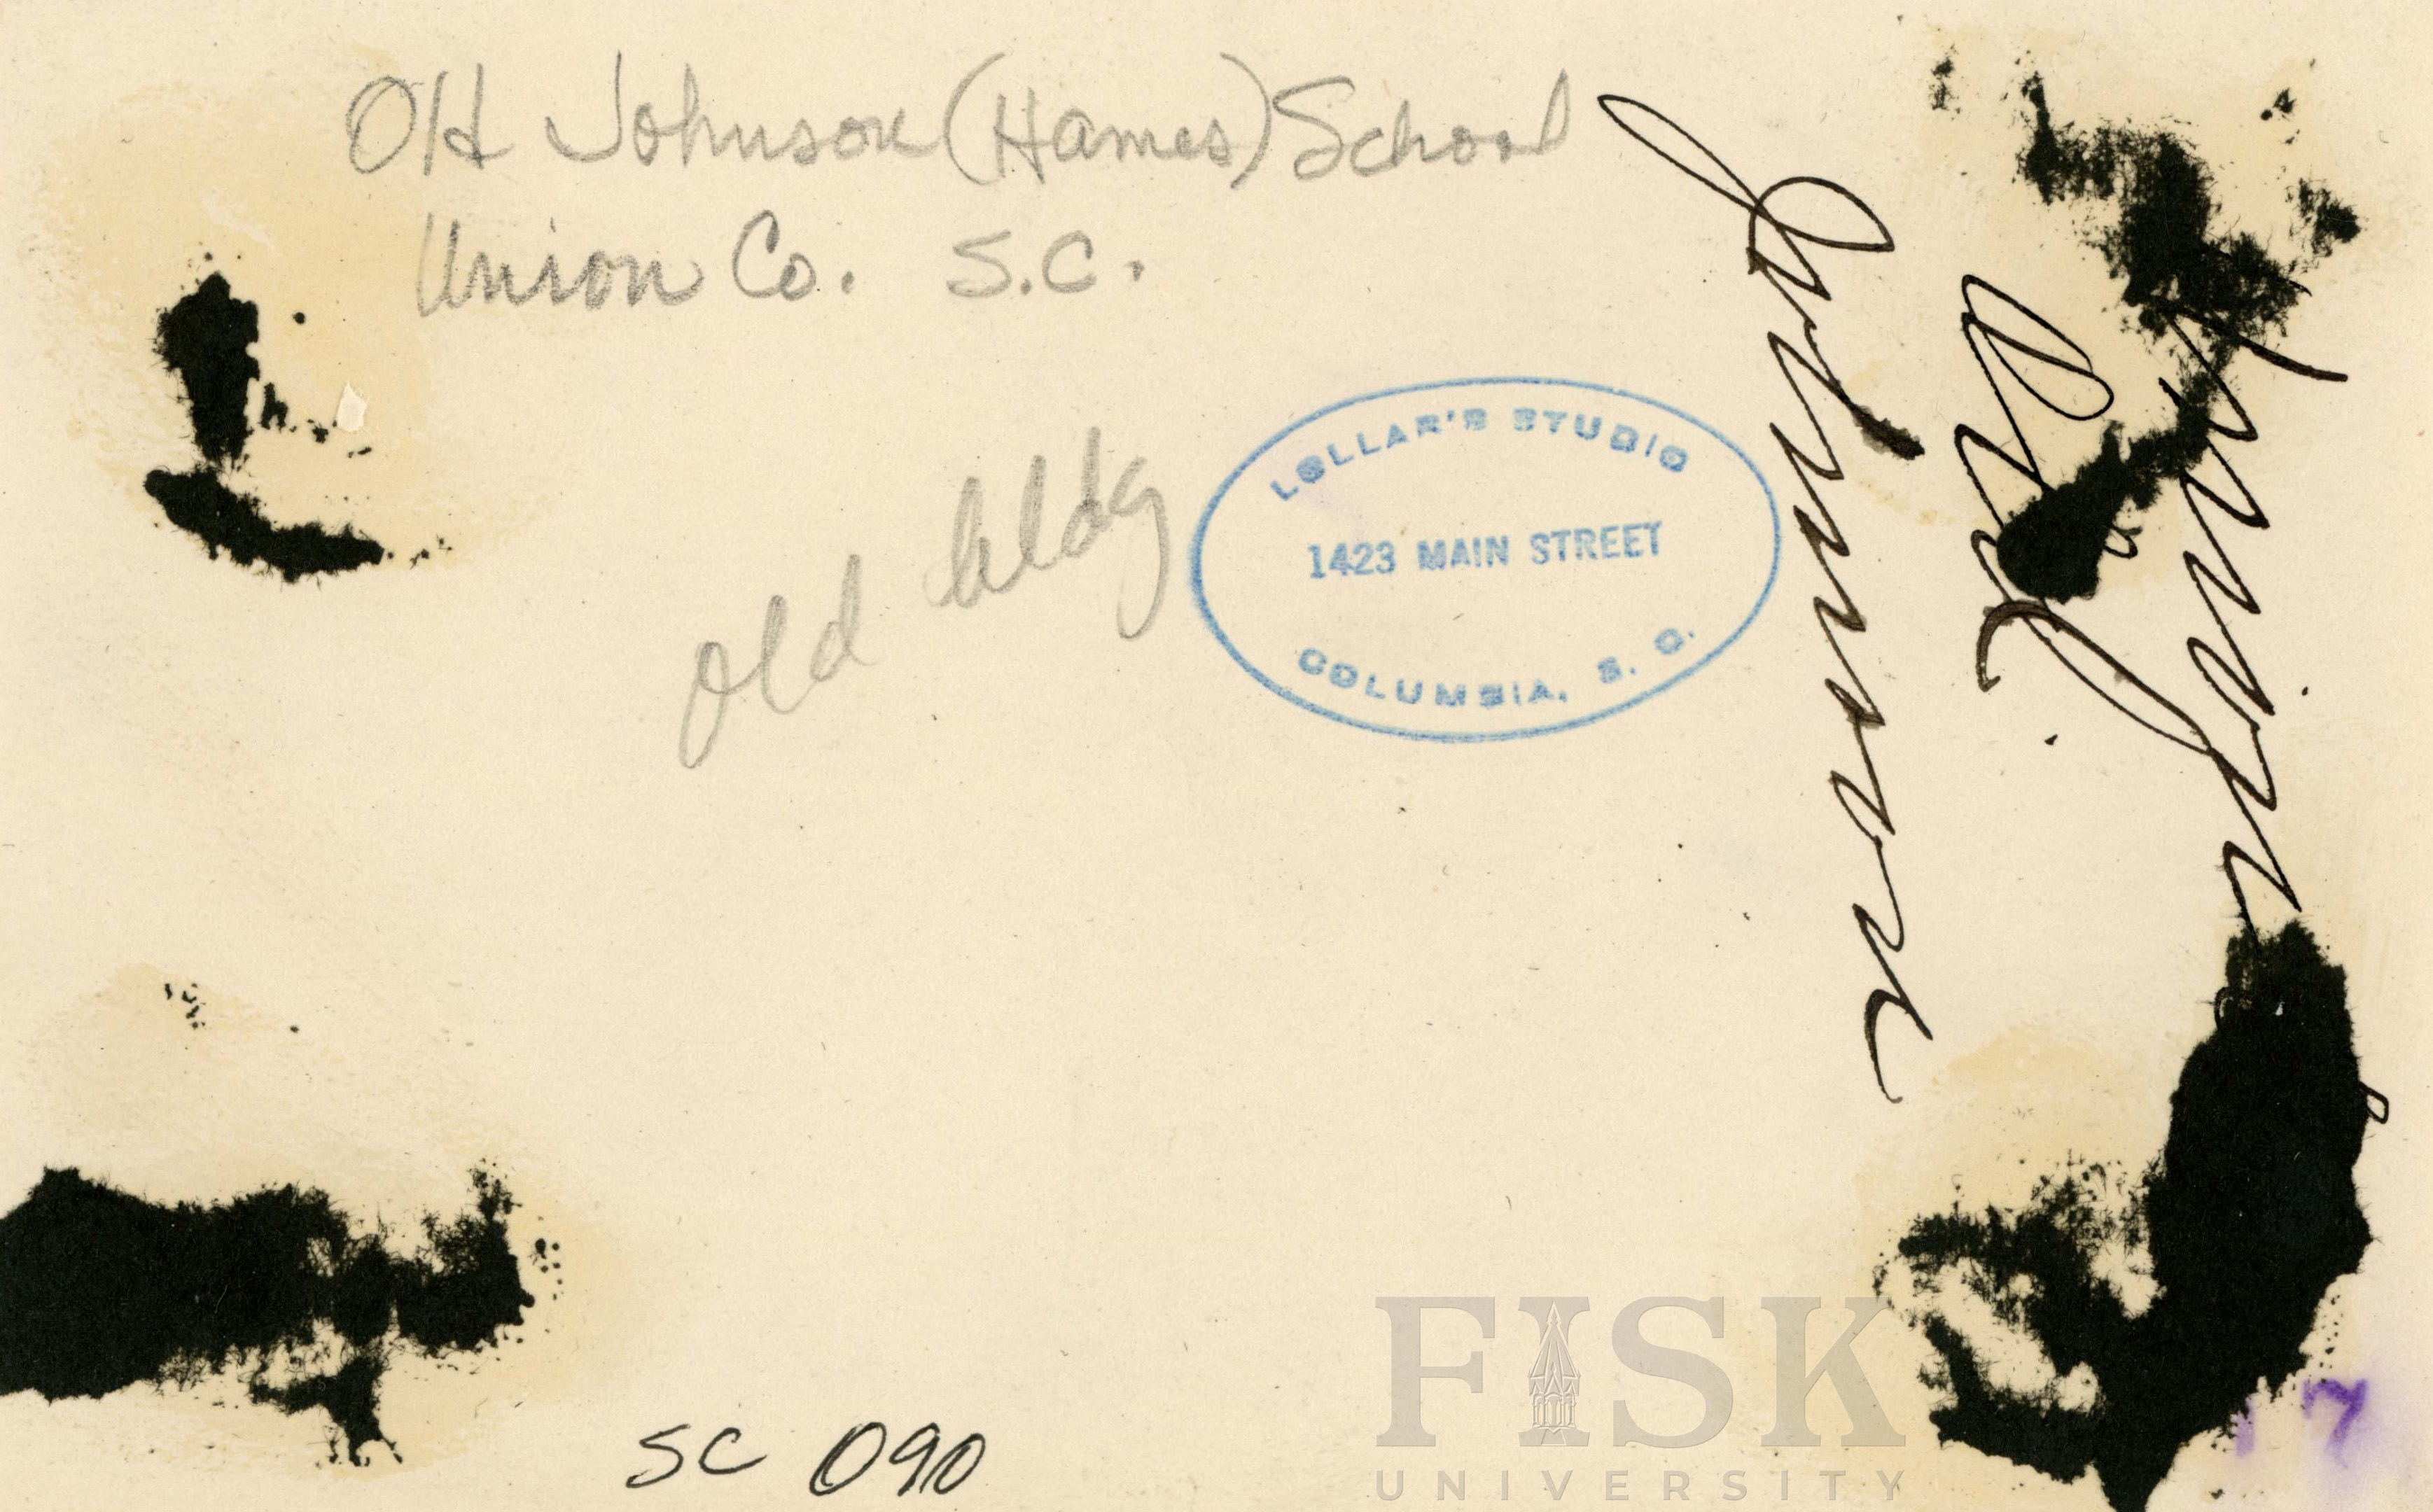 OH Johnson (Hames) School
Union Co. S.C.
old bldg
LOLLAR'S STUDIO
1423 MAIN STREET
COLUMBIA, S. C.
Johnson
SC 090
17
FISK
UNIVERSITY